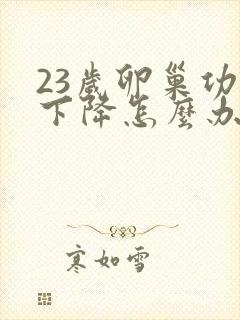 23歲卵巢功
下降怎麼办
寒如雪